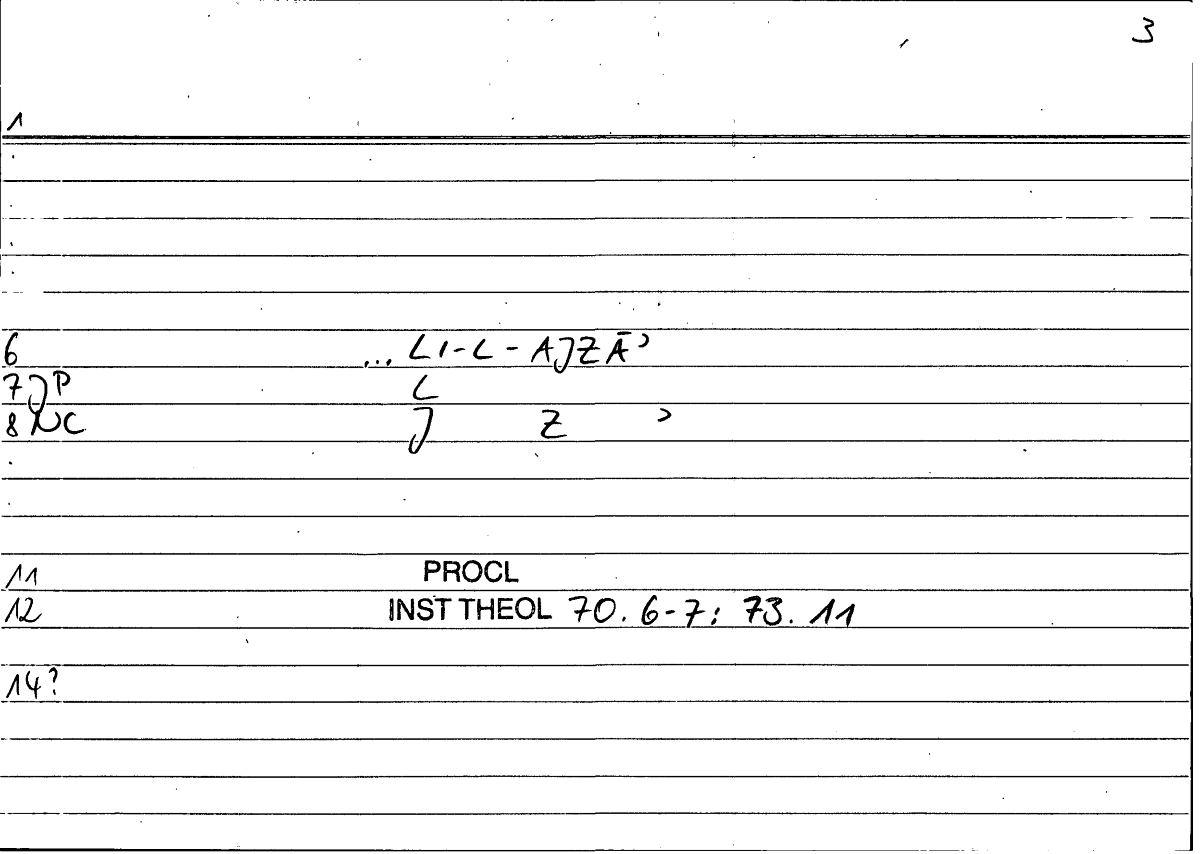 3
1
6 ... LI-L-AJZĀʾ
7 JP L
8 NC J Z ʾ
11 PROCL
12 INST THEOL 70. 6-7: 73. 11
14?